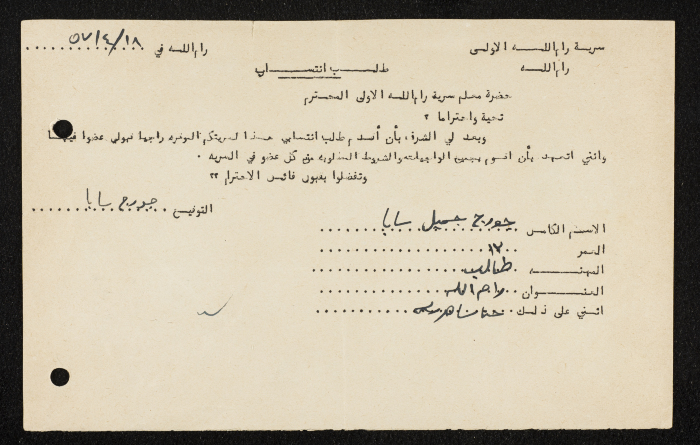 سرية رام اللـــه الاولى
رام اللـــه
رام اللـــه في ٥٧/٤/١٨
طلـــب انتســـاب
حضرة معلم سرية رام اللـه الاولى المحترم
تحية واحتراما ؟
وبعد لي الشرف بأن أقدم طلب انتسابي هـذا لسريتكم الموقره راجيا قبولي عضوا فيهـا
وانني اتعهـد بأن اقوم بجميع الواجبات والشروط المطلوبه من كل عضو في السريه .
وتفضلوا بقبول فائق الاحترام ؟؟
التوقيـع جورج سابا
الاســـم الكامـل جورج جميل سابا
العمـــر ١٢
المهنـــه طالب
العنـــوان رام الله
اثـني على ذلـك حنا